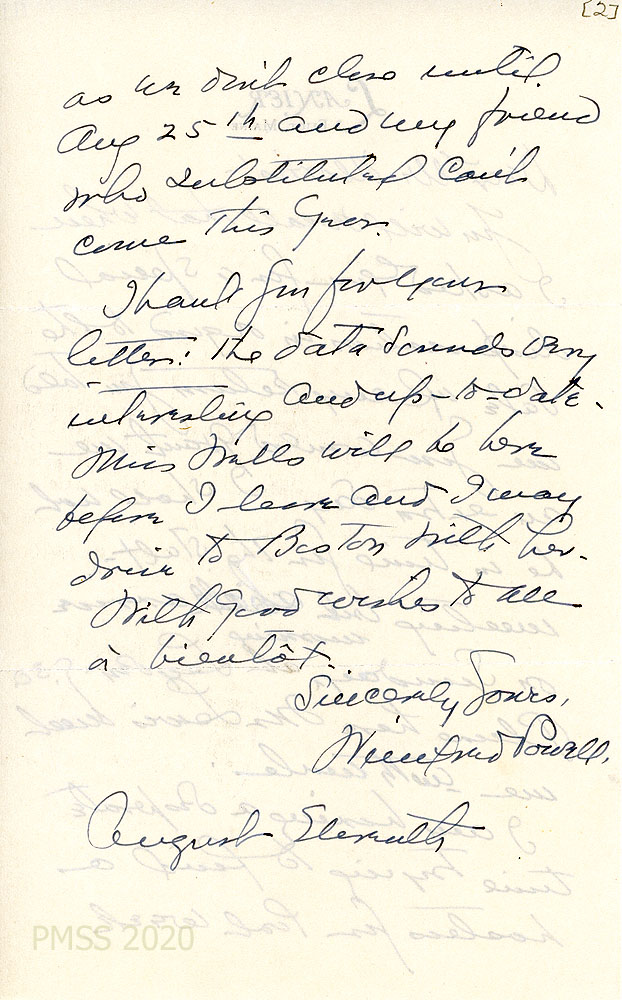 [2]
as we don't close until
Aug 25th and my friend
who substituted can't
come this year.
Thank you for your
letter: the data sounds very
interesting and up-to-date.
Miss Wells will be here
before I leave and I may
drive to Boston with her.
With good wishes to all
à bientôt.
Sincerely yours,
Winifred Powell.
August Eleventh
PMSS 2020